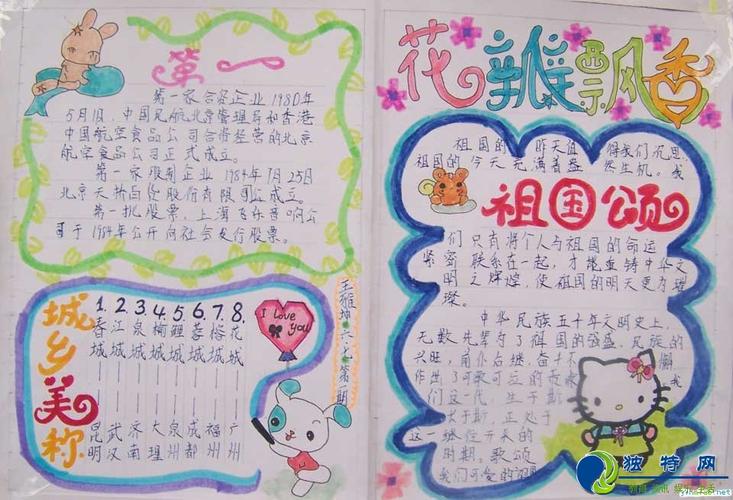 第一
第一家合资企业 1980年
5月1日,中国民航北京管理局和香港
中国航空食品公司合资经营的北京
航空食品公司正式成立。
第一家股制企业 1984年7月25日
北京天桥百货股份有限公司成立。
第一批股票,上海飞乐音响公
司于1984年公开向社会发行股票。
城乡美称
1. 2. 3. 4. 5. 6. 7. 8.
春 江 泉 榆 鲤 蓉 榕 花
城 城 城 城 城 城 城 城
昆 武 济 大 泉 成 福 广
明 汉 南 理 州 都 州 州
I love
you
第一期
花瓣飘香
祖国的 昨天值 得我们沉思
祖国的 今天充满着盎 然生机。我
祖国颂
们 只有将个人与祖国的命运
紧密 联系在一起,才能重铸中华文
明之辉煌,使祖国的明天更为璀
璨。
中华民族五千年文明史上,
无数先辈为了祖国的强盛,民族的
兴旺,前仆后继,奋斗不 懈
作出了可歌可泣的贡献 我
们这一代,生于斯
长于斯,正处于
这一继往开来的
时期。歌颂
我们可爱的祖国
独特网